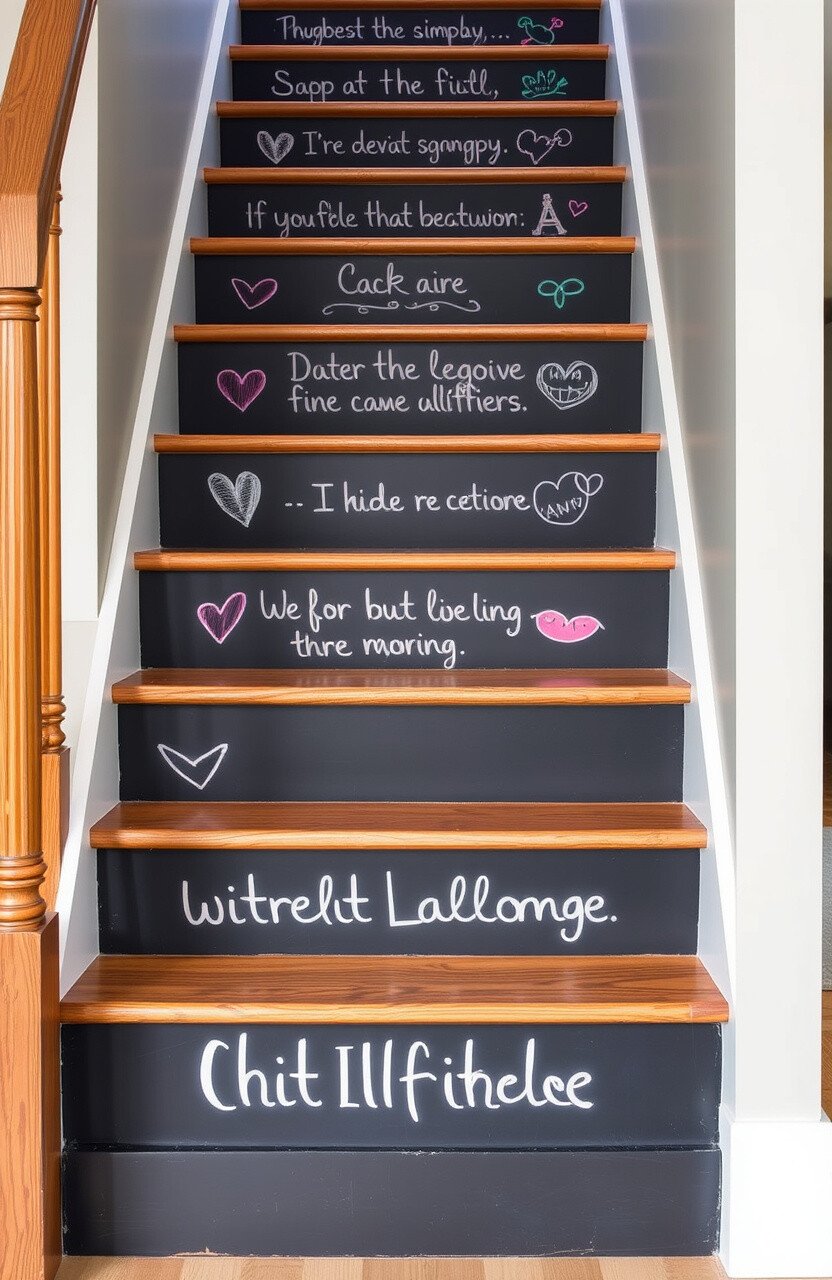 Thugbest the simplay,...
Sapp at the fiutll,
I're devat sgnngpy.
If youfdle that beatuwon:
Cack aire
Dater the legoive
fine came ulliffiers.
-- I hide re cetiore
We for but live ling
thre moring.
witrelit Lallomge.
Chit Illfithelee